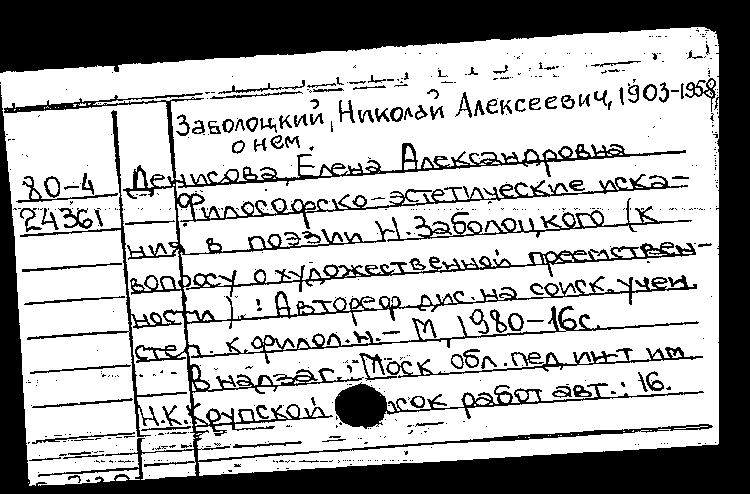 Заболоцкий, Николай Алексеевич, 1903-1958
о нем.
80-4 Денисова, Елена Александровна
24361 Философско-эстетические иска-
ния в поэзии Н. Заболоцкого (к
вопросу о художественной преемствен-
ности).: Автореф. дис. на соиск. учен.
степ. к. филол. н. - М, 1980-16с.
В надзаг.: Моск. обл. пед. ин-т им.
Н.К. Крупской работ авт.: 16.